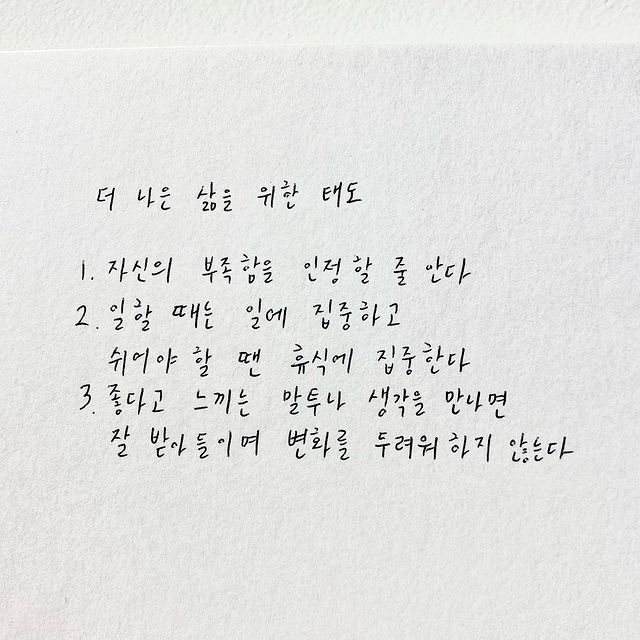 더 나은 삶을 위한 태도
1. 자신의 부족함을 인정할 줄 안다
2. 일할 때는 일에 집중하고
쉬어야 할 땐 휴식에 집중한다
3. 좋다고 느끼는 말투나 생각을 만나면
잘 받아들이며 변화를 두려워하지 않는다